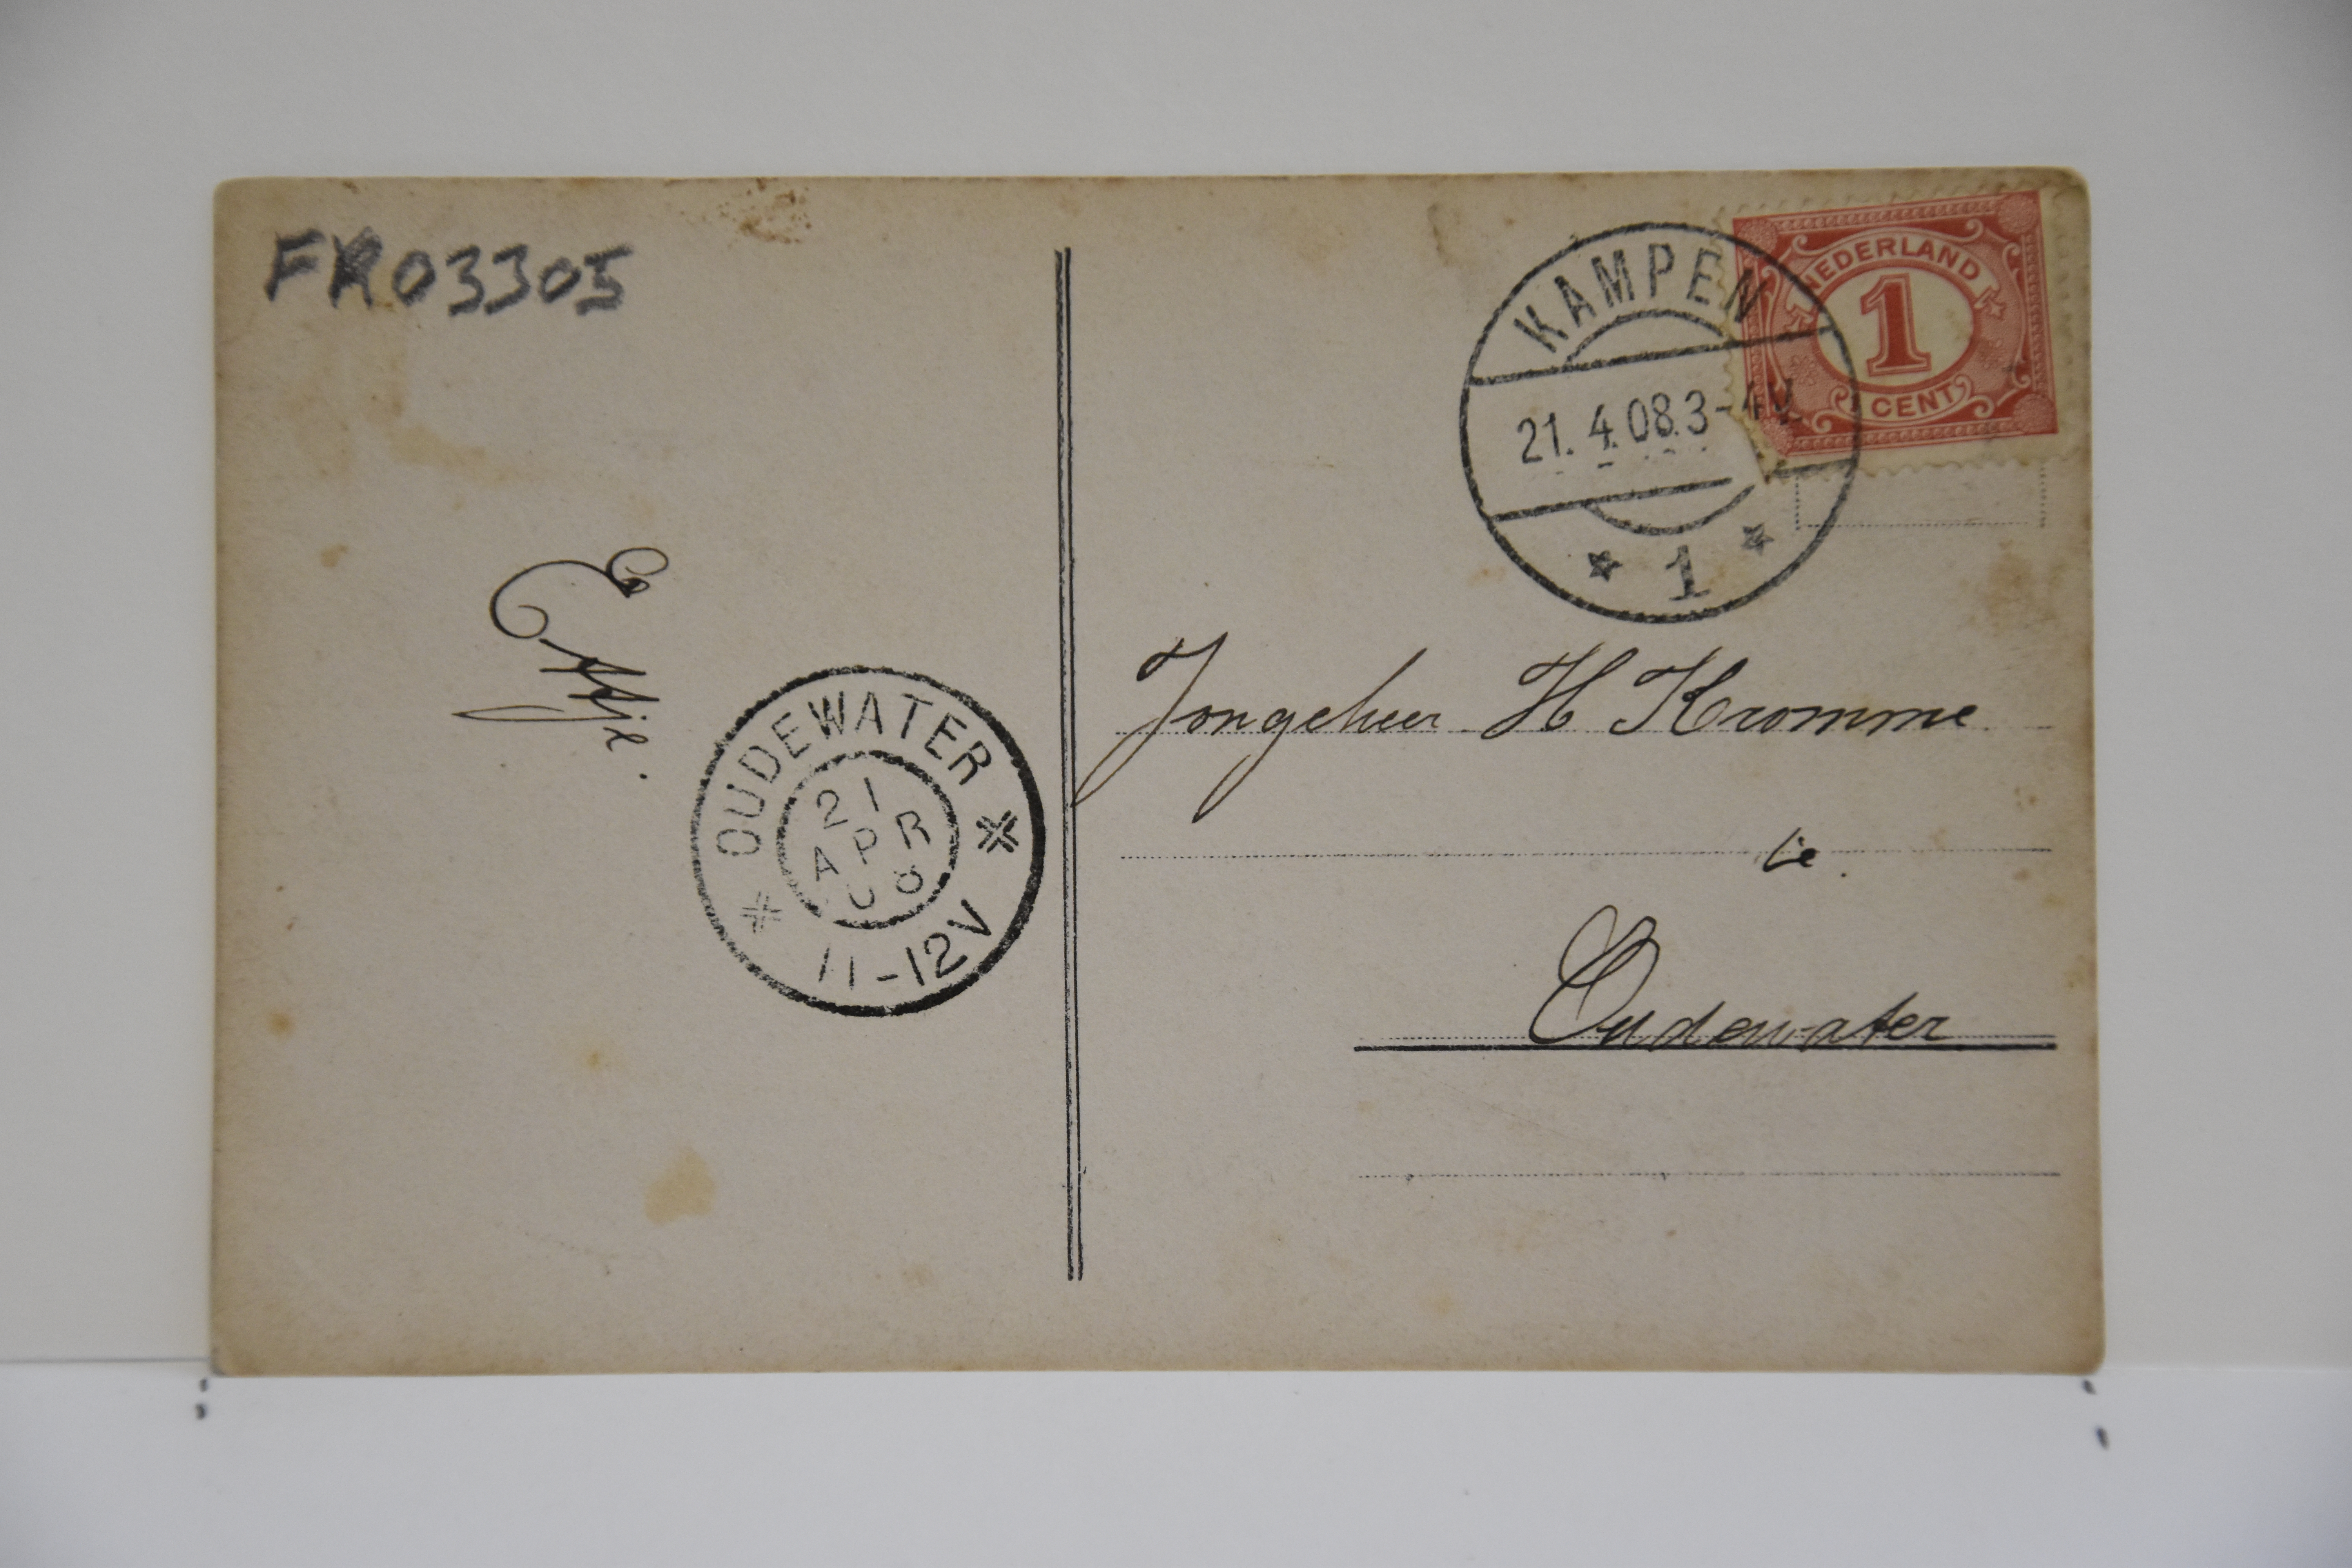 FR03305
KAMPEN
21.4.08.3-4V
1
NEDERLAND
1
CENT
Ettje.
OUDEWATER
21
APR
08
11-12V
Jongeheer H Kromme
te.
Oudewater